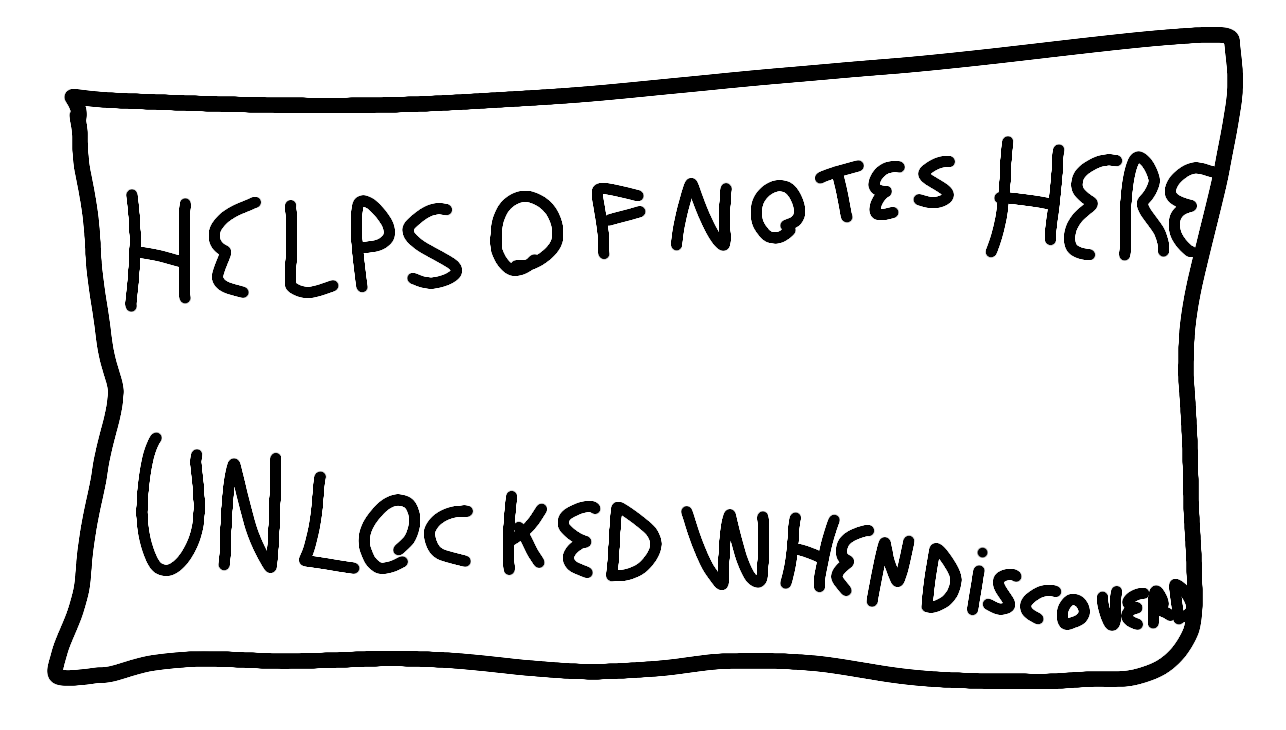 HELPS OF NOTES HERE
UNLOCKED WHEN DiSCOVERD